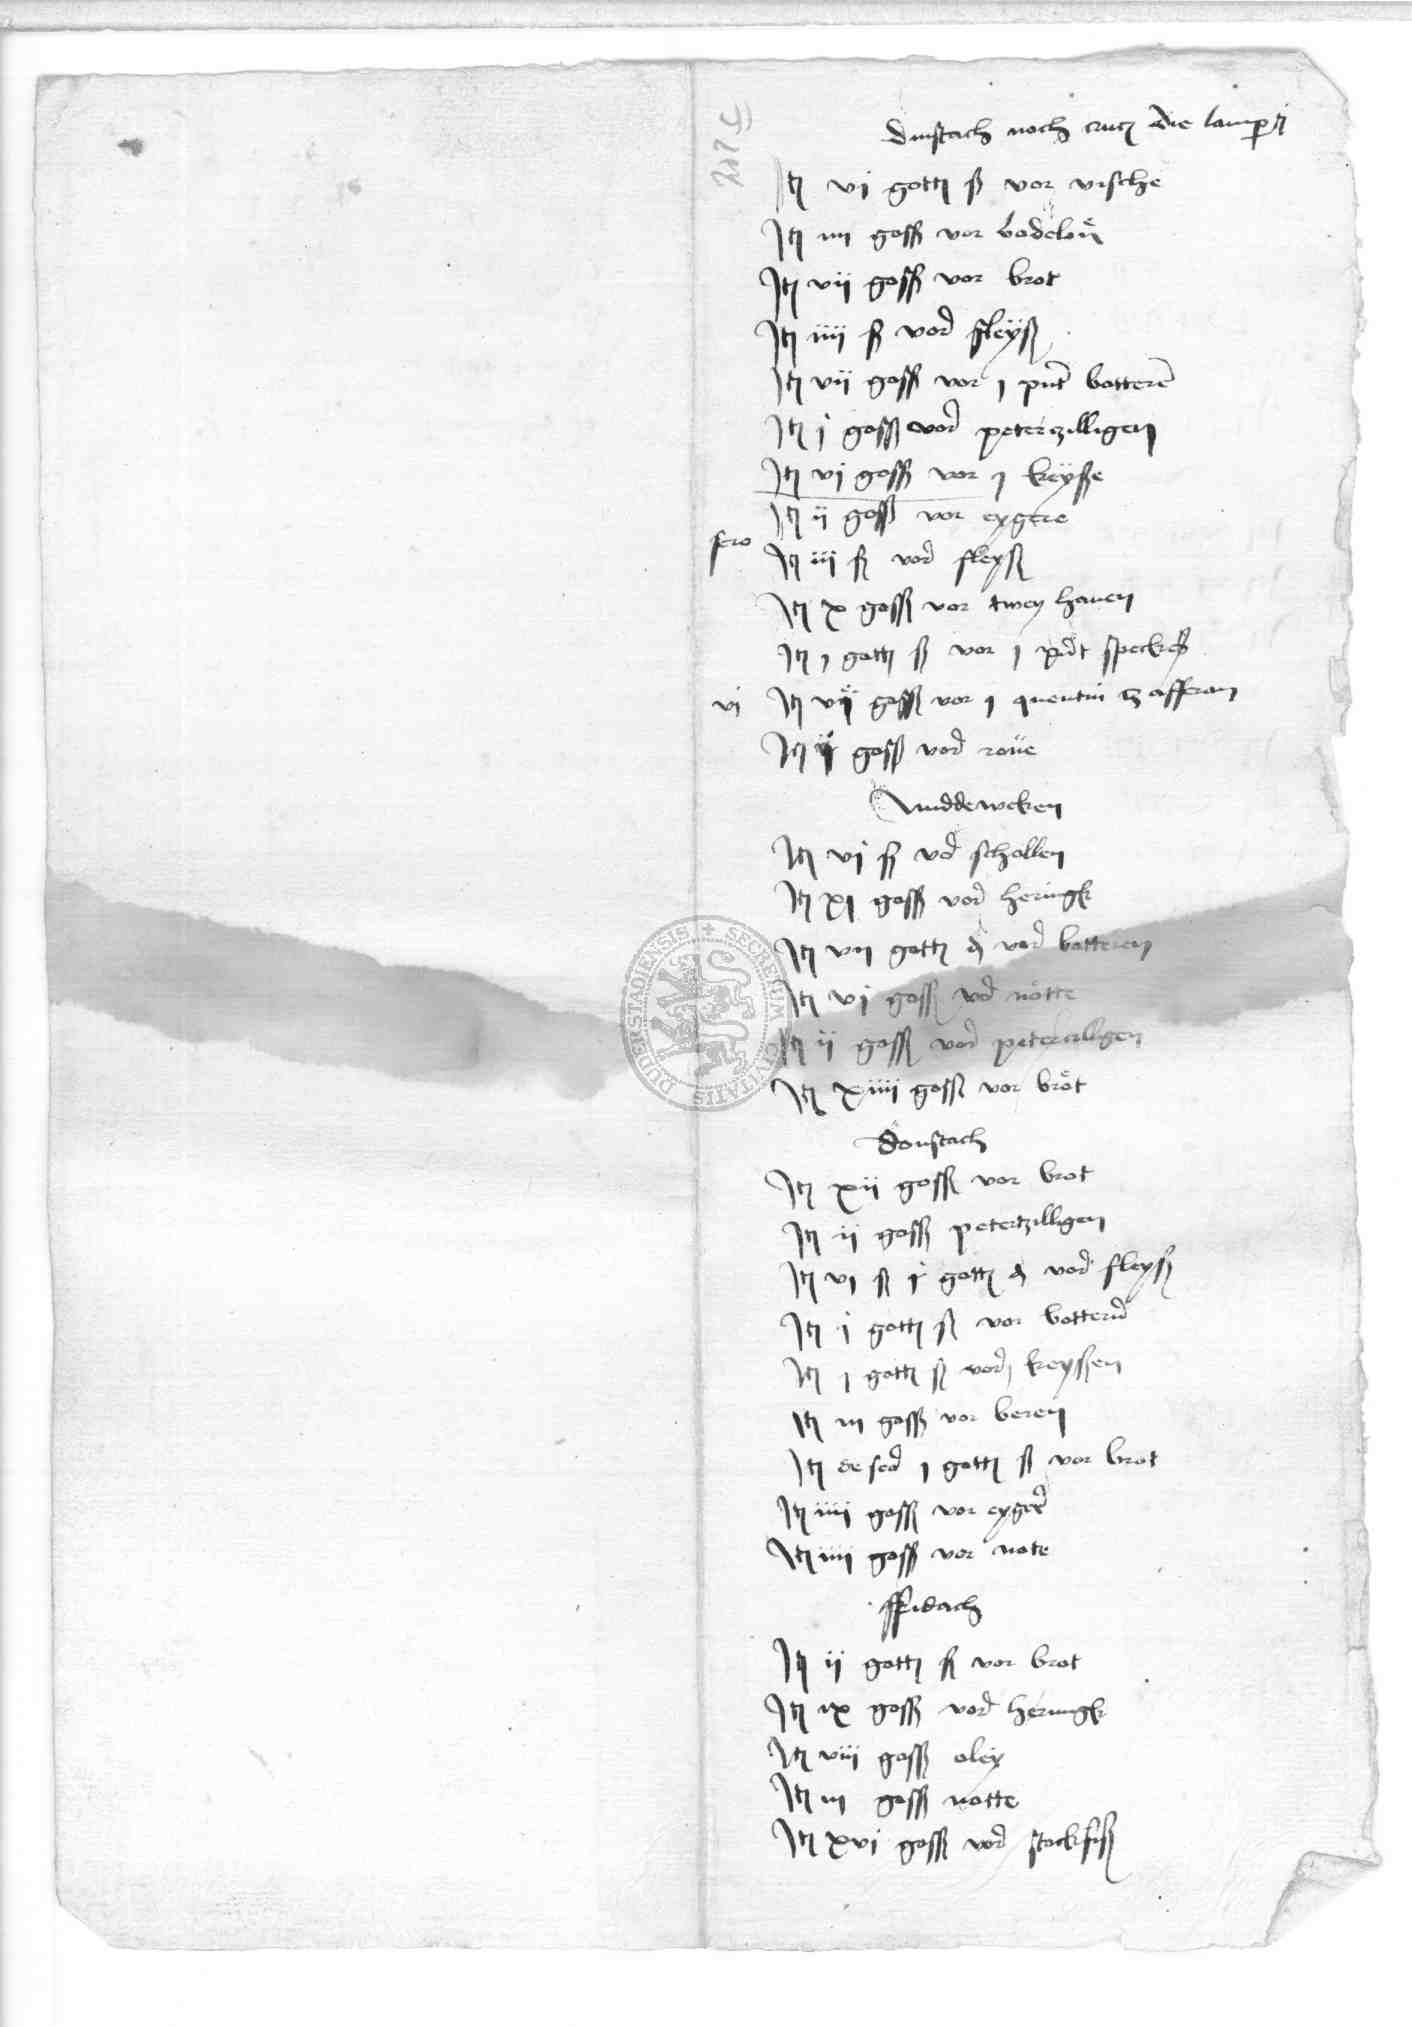 dinstach noch crucz die lamperti
Item vi gott ß vor vische
Item iiii goss vor bodelon
Item vii goss vor brot
Item iiii ß vor fleyß
Item vii goss vor j punt botteren
Item j goss vor peterzilligen
Item vi goss vor j keyße
Item ii goss vor eygere
sero
Item iii ß vor fleyß
Item x goss vor twey haven
Item j gott ß vor j pndt speckes
vi Item vii goss vor j quentin zafferan
Item goss vor rove
middeweken
Item vi ß vor schollen
Item xi goss vor heringk
Item vii gott vor botteren
Item vi goss vor notte
Item ii goss vor petercilligen
Item xiiii goss vor brot
donstach
Item xii goss vor brot
Item ii goss petertzilligen
Item vi ß j gott vor fleyß
Item j gott ß vor botteren
Item j gott ß vor keyßen
Item iii goss vor beren
Item de sero j gott ß vor brot
Item iiii goss vor eyger
Item iiii goss vor note
ffridach
Item ii gott ß vor brot
Item ix goss vor heringk
Item viii goss oley
Item iii goss notte
Item xvi goss vor stockfiß
SECRETUM CIVITATIS DUDERSTADIENSIS